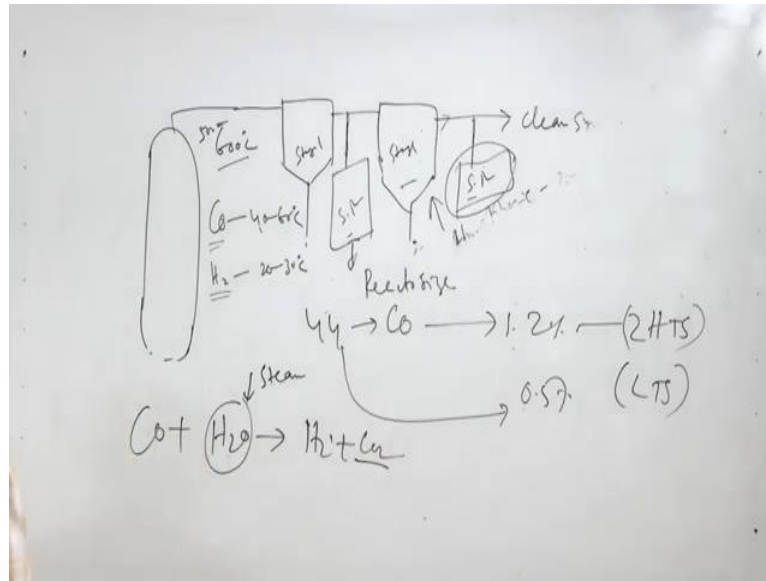 600°C
Stage 1
Stage
clean
S.R
S.R
CO - 40-60%
H2 - 20-30%
Reactor size
44 → CO → 1.2% — (2HTS)
0.5% (LTS)
Steam
CO + H2O → H2 + CO2